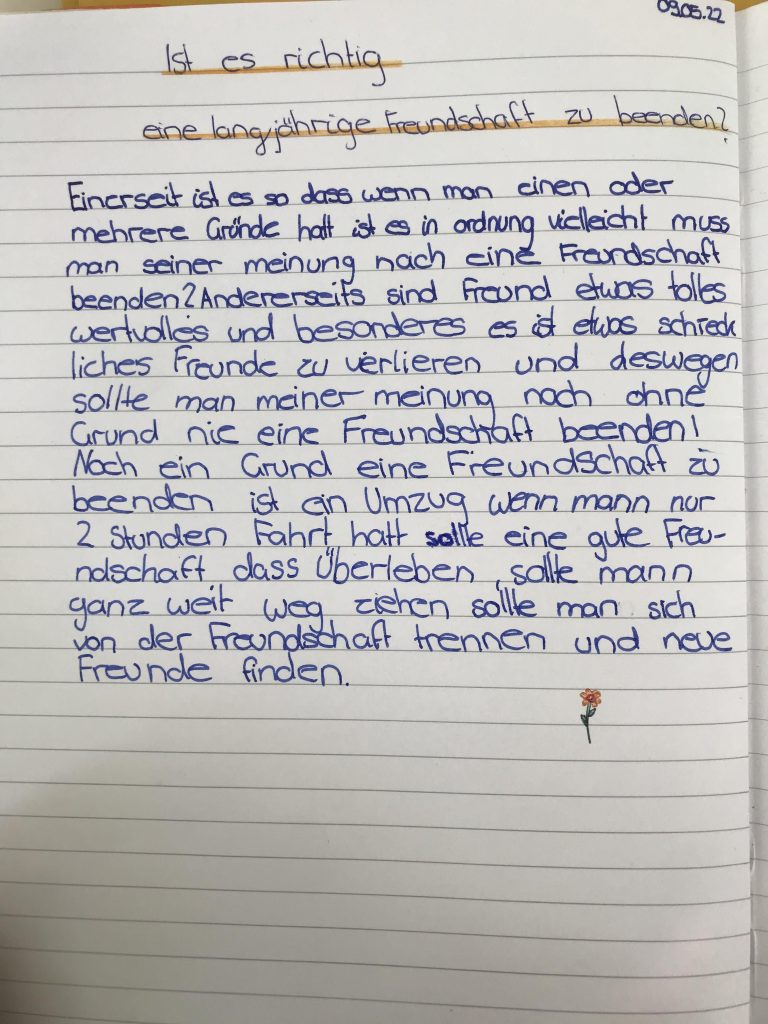 09.05.22
Ist es richtig
eine langjährige Freundschaft zu beenden?
Einerseit ist es so dass wenn man einen oder
mehrere Gründe hatt ist es in ordnung vielleicht muss
man seiner meinung nach eine Freundschaft
beenden? Andererseits sind Freund etwas tolles
wertvolles und besonderes es ist etwas schreck
liches Freunde zu verlieren und deswegen
sollte man meiner meinung nach ohne
Grund nie eine Freundschaft beenden!
Noch ein Grund eine Freundschaft zu
beenden ist ein Umzug wenn mann nur
2 Stunden Fahrt hatt sollte eine gute Freu-
ndschaft dass Überleben, sollte mann
ganz weit weg ziehen sollte man sich
von der Freundschaft trennen und neue
Freunde finden.